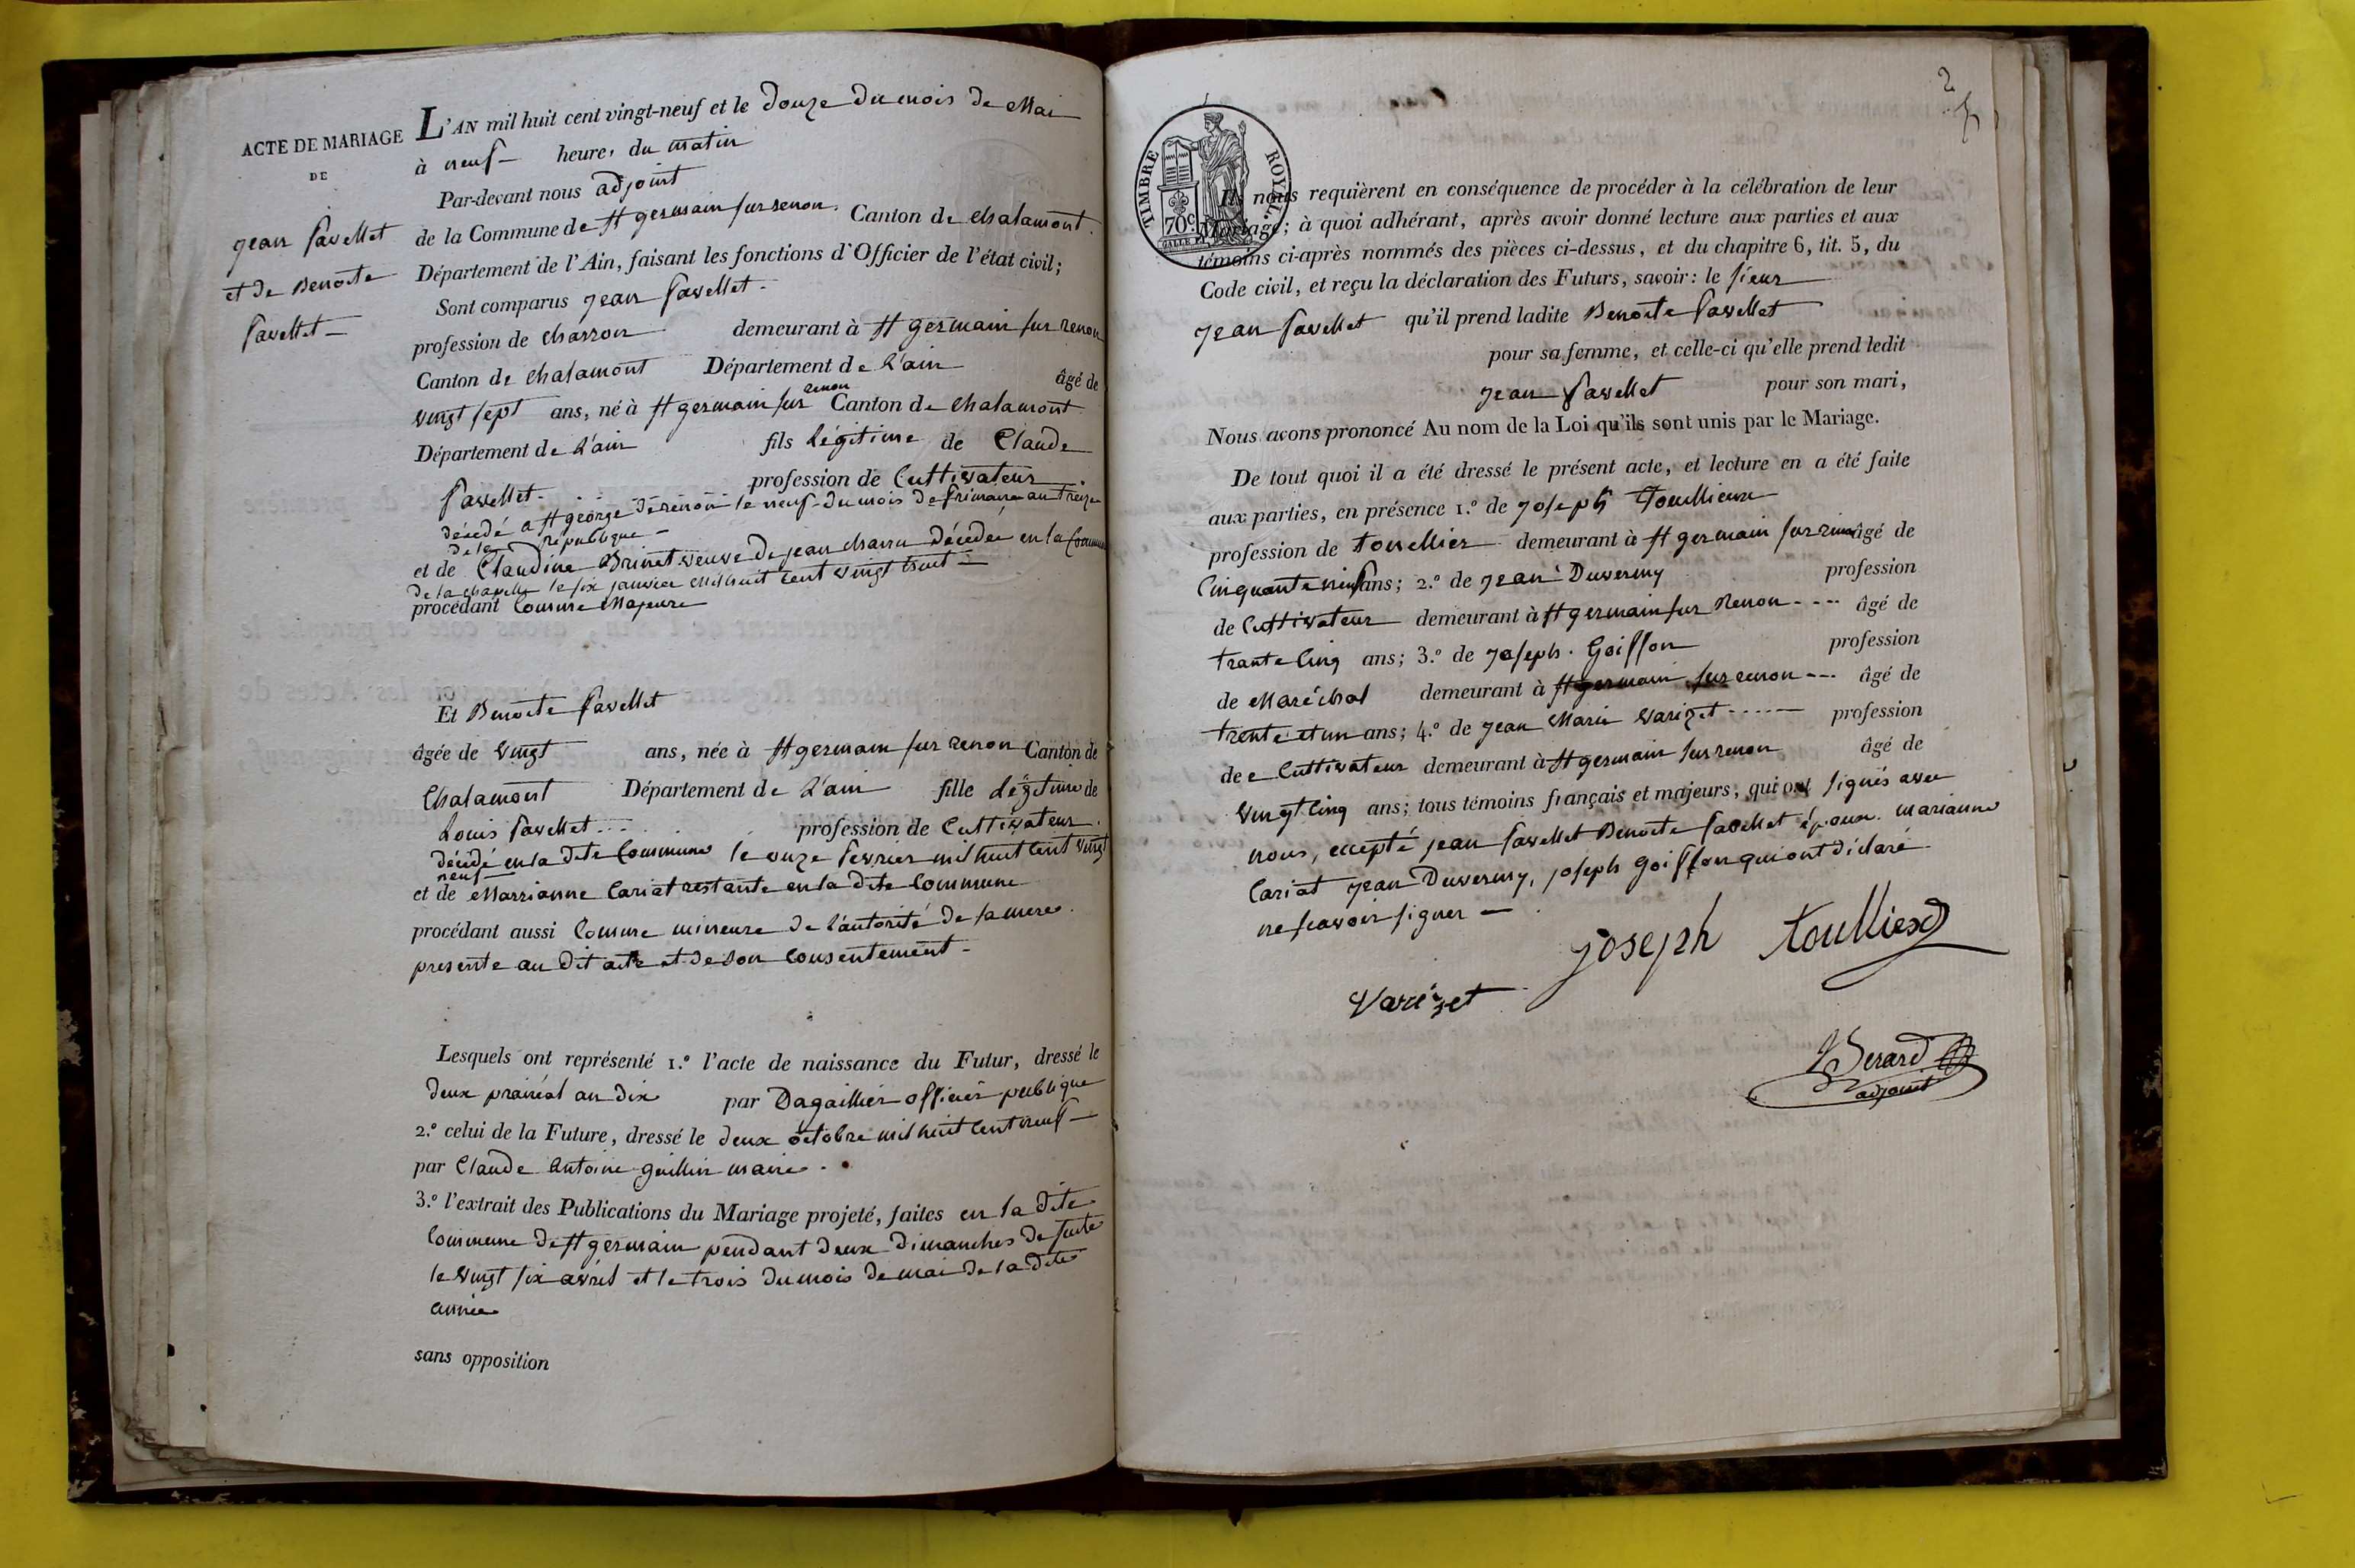 ACTE DE MARIAGE
DE
jean favellet
et de Benoite
favellet
L'AN mil huit cent vingt-neuf et le douze du mois de Mai
à neuf heure, du matin
Par-devant nous adjoint
de la Commune de st germain sur renon. Canton de chalamont.
Département de l'Ain, faisant les fonctions d'Officier de l'état civil;
Sont comparus jean favellet.
profession de charron demeurant à st germain sur renon
Canton de chalamont Département de L'ain âgé de
vingt sept ans, né à st germain sur renon Canton de chalamont
Département de L'ain fils légitime de Claude
favellet. profession de Cultivateur
décédé a st george de renon le neuf du mois de frimaire an treize
de la république
et de Claudine Brinet veuve de jean charru décédée en la Commune
de la chapelle le six janvier mil huit cent vingt huit
procédant Comme Majeure
Et Benoite favellet
âgée de vingt ans, née à st germain sur renon Canton de
Chalamont Département de L'ain fille Légitime de
Louis favellet profession de Cultivateur.
décédé en la dite Commune le onze fevrier mil huit cent vingt
neuf
et de Marrianne Cariat restante en la dite Commune
procédant aussi Comme mineure de l'autorité de sa mere.
presente au dit acte et de son Consentement
Lesquels ont représenté 1.º l'acte de naissance du Futur, dressé le
deux prairéal an dix par Dagaillier officier publique
2.º celui de la Future, dressé le deux octobre mil huit cent neuf
par Claude Antoine guillin maire.
3.º l'extrait des Publications du Mariage projeté, faites en la dite
Commune de st germain pendant deux dimanches de suite
le vingt six avril et le trois du mois de mai de la dite
année
sans opposition
TIMBRE ROYAL
70 c.
Ils nous requièrent en conséquence de procéder à la célébration de leur
Mariage; à quoi adhérant, après avoir donné lecture aux parties et aux
témoins ci-après nommés des pièces ci-dessus, et du chapitre 6, tit. 5, du
Code civil, et reçu la déclaration des Futurs, savoir: le sieur
jean favellet qu'il prend ladite Benoite favellet
pour sa femme, et celle-ci qu'elle prend ledit
jean favellet pour son mari,
Nous avons prononcé Au nom de la Loi qu'ils sont unis par le Mariage.
De tout quoi il a été dressé le présent acte, et lecture en a été faite
aux parties, en présence 1.º de joseph Toullieux
profession de tonellier demeurant à st germain sur renon âgé de
Cinquante neuf ans; 2.º de jean Duverny profession
de Cultivateur demeurant à st germain sur Renon âgé de
trante Cinq ans; 3.º de joseph. Goiffon profession
de Maréchal demeurant à st germain sur renon âgé de
trente et un ans; 4.º de jean Marie Varizet profession
de Cultivateur demeurant à st germain sur renon âgé de
vingt Cinq ans; tous témoins français et majeurs, qui ont signés avec
nous, excepté jean favellet Benoite favellet époux. marianne
Cariat jean Duverny, joseph goiffon qui ont déclaré
ne scavoir signer
joseph toullieux
Varizet
Berard
adjoint